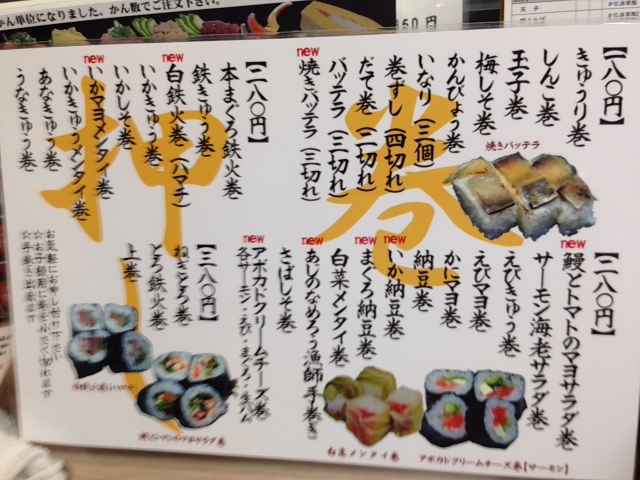 かん単位になりました。かん数でご注文下さい
50円
玉子
巻
押
【一八〇円】
きゅうり巻
しんこ巻
玉子巻
梅しそ巻
かんぴょう巻
いなり(三個)
巻ずし(四切れ)
だて巻(二切れ)
バッテラ(三切れ)
new
焼きバッテラ(三切れ)
焼きバッテラ
【二八〇円】
本まぐろ鉄火巻
鉄きゅう巻
new
白鉄火巻(ハマチ)
いかきゅう巻
いかしそ巻
new
いかマヨメンタイ巻
いかきゅうメンタイ巻
あなきゅう巻
うなきゅう巻
【二八〇円】
new
鰻とトマトのマヨサラダ巻
サーモン海老サラダ巻
えびきゅう巻
えびマヨ巻
かにマヨ巻
納豆巻
new
いか納豆巻
new
まぐろ納豆巻
new
白菜メンタイ巻
new
あじのなめろう漁師手巻き
さばしそ巻
new
アボカドクリームチーズ巻
各サーモン・えび・まぐろ・生ハム
【三八〇円】
ねぎとろ巻
とろ鉄火巻
上巻
お気軽にお申し付け下さい
☆お子様用に巻を小さく切れます
☆手巻き出来ます
白菜メンタイ巻
アボカドクリームチーズ巻【サーモン】